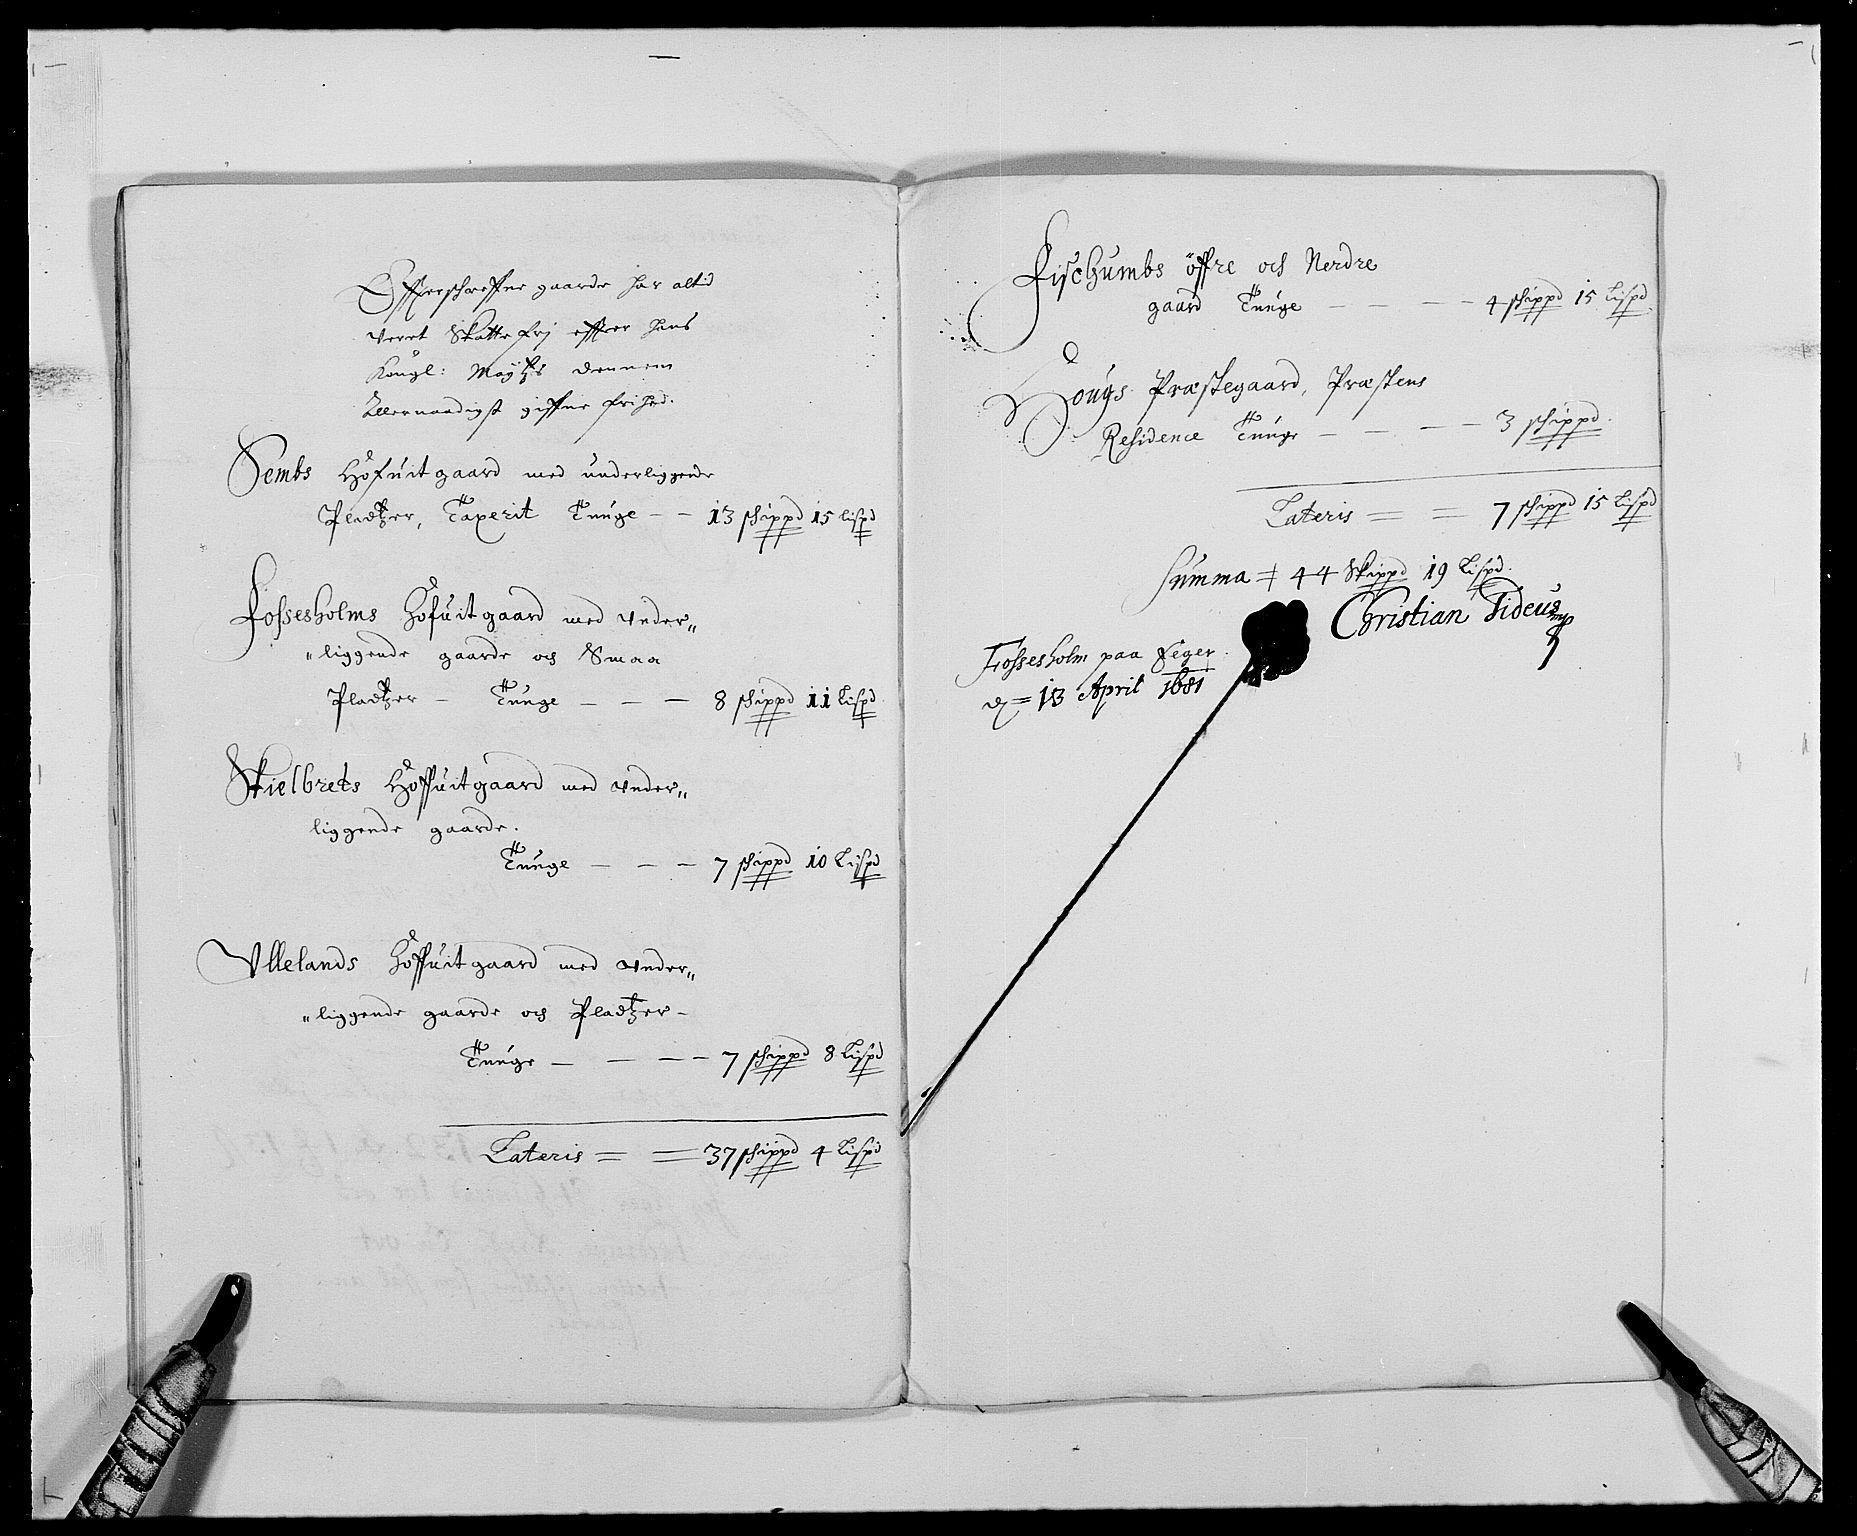 Effterschreffne gaarde har altid
veret Skatte frj effter hans
Kongl: Maytz dennem
Allernaadigst giffne frihed.
Sembs Hofuit gaard med underliggende
Pladtzer, Taxerit Tunge - - 13 schippd 15 lispd
Fossesholms Hofuit gaard med vnder„
„liggende gaarde och Smaa
Pladtzer - Tunge - - - 8 schippd 11 Lispd
Skielbreds Hoffuit gaard med vnder„
liggende gaarde.
Tunge - - - 7 schippd 10 Lispd
Vllelands Hoffuit gaard med vnder„
„liggende gaarde och Pladtzer -
Tunge - - - - 7 schippd 8 Lispd
Lateris = = 37 schippd 4 Lispd
Fischumbs öffre och Nerdre
gaard Tunge - - - - 4 schippd 15 Lispd
Hougs Præstegaard, Præstens
Residence Tunge - - - - 3 schippd.
Lateris = = 7 schippd 15 Lispd
Summa = 44 Skippd 19 Lispd.
Christian Tideus mp
Fossesholm paa Eger.
d = 13 April 1681